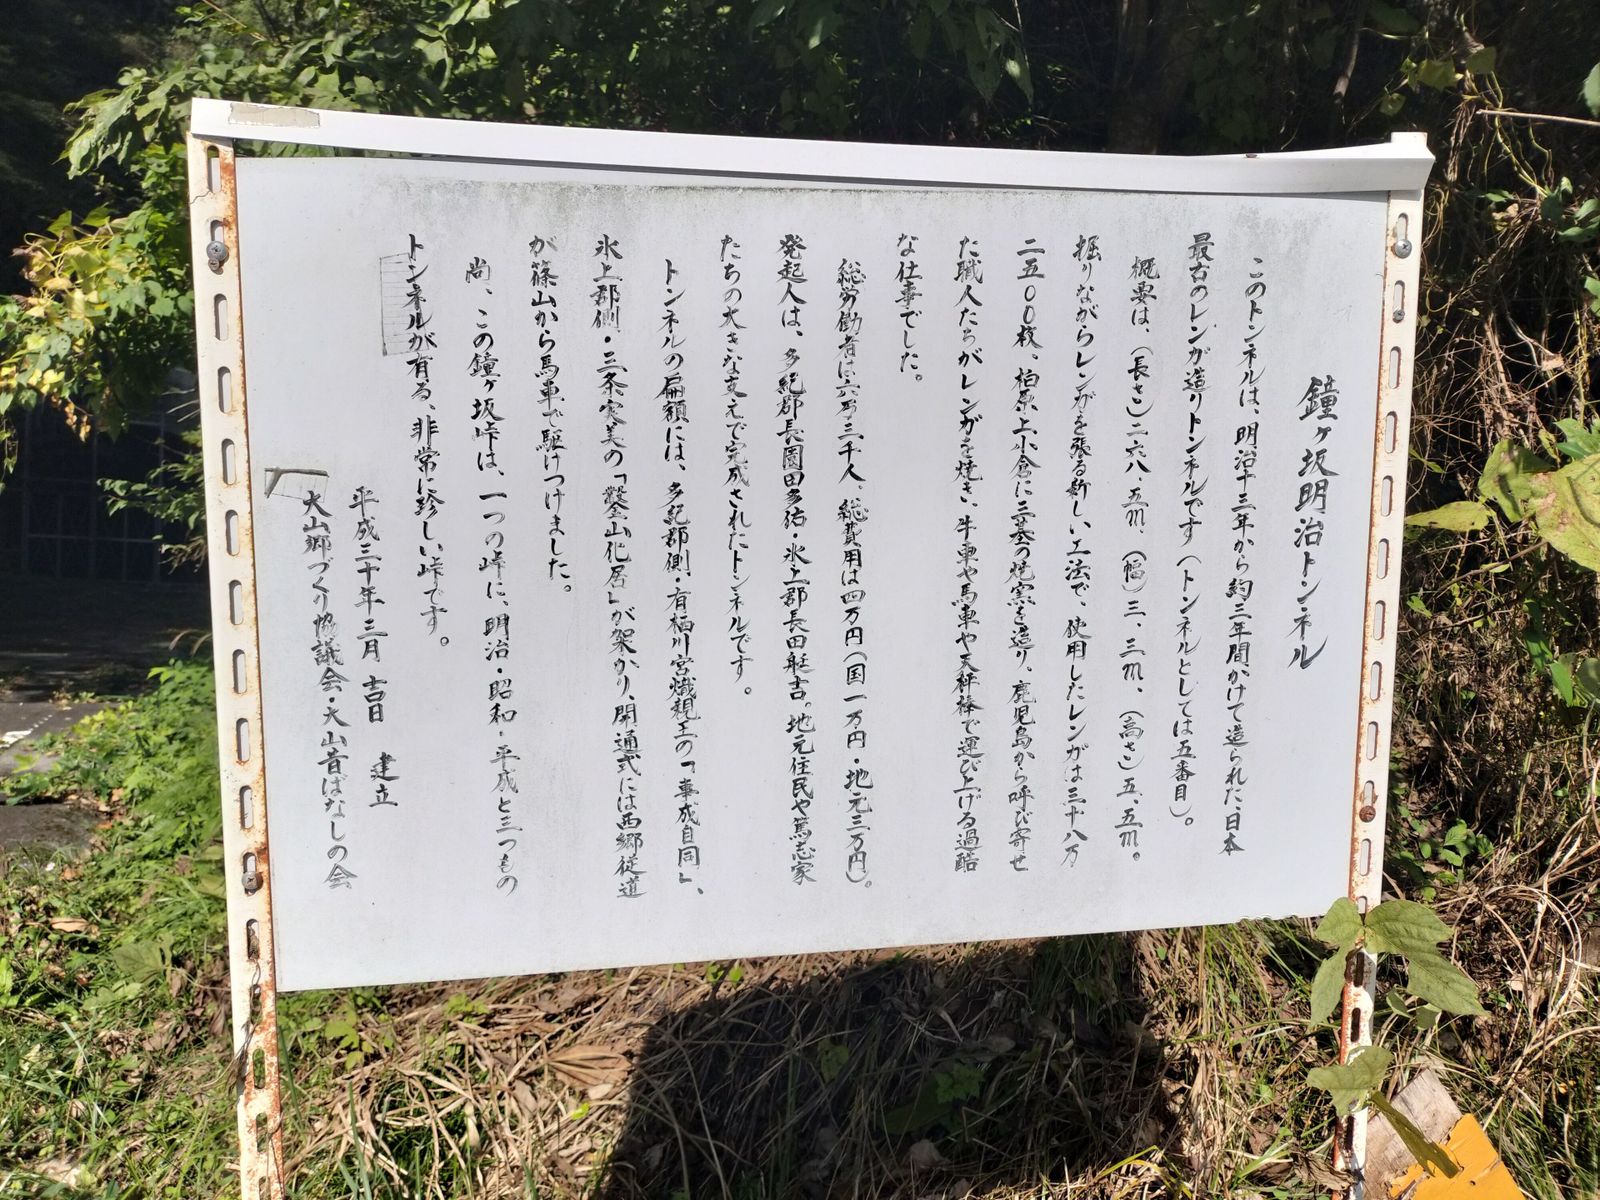 鐘ヶ坂明治トンネル
このトンネルは、明治十三年から約三年間かけて造られた、日本
最古のレンガ造りトンネルです(トンネルとしては五番目)。
概要は、(長さ)二六八、五m、(幅)三、三m、(高さ)五、五m。
掘りながらレンガを張る新しい工法で、使用したレンガは三十八万
二五〇〇枚、柏原上小倉に三基の焼窯を造り、鹿児島から呼び寄せ
た職人たちがレンガを焼き、牛車や馬車や天秤棒で運び上げる過酷
な仕事でした。
総労働者は六万三千人、総費用は四万円(国一万円・地元三万円)。
発起人は、多紀郡長園田多祐・氷上郡長田艇吉。地元住民や篤志家
たちの大きな支えで完成されたトンネルです。
トンネルの扁額には、多紀郡側・有栖川宮熾親王の「事成自同」、
氷上郡側・三条実美の「鑿山化居」が架かり、開通式には西郷従道
が篠山から馬車で駆けつけました。
尚、この鐘ヶ坂峠は、一つの峠に、明治・昭和・平成と三つもの
トンネルが有る、非常に珍しい峠です。
平成三十年三月吉日 建立
大山郷づくり協議会・大山昔ばなしの会